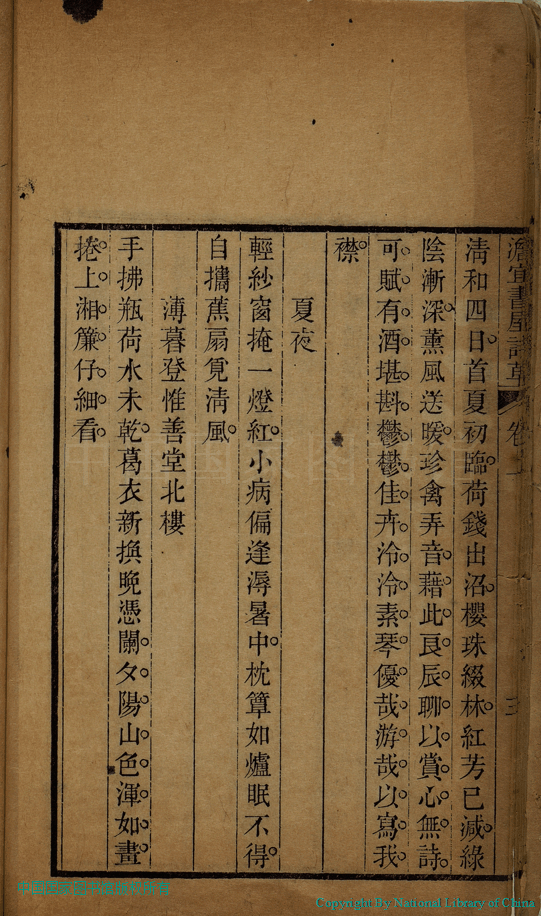 澹宜書屋詩草 卷 三
清和四日。首夏初臨。荷錢出沼。櫻珠綴林。紅芳已減。綠
陰漸深。薰風送暖。珍禽弄音。藉此良辰。聊以賞心。無詩
可賦。有酒堪斟。鬱鬱佳卉。泠泠素琴。優哉游哉。以寫我
襟。
夏夜
輕紗窗掩一燈紅。小病偏逢溽暑中。枕簟如爐眠不得。
自攜蕉扇覓清風。
薄暮登惟善堂北樓
手拂瓶荷水未乾。葛衣新換晚憑闌。夕陽山色渾如畫。
捲上湘簾仔細看。
Copyright By National Library of China